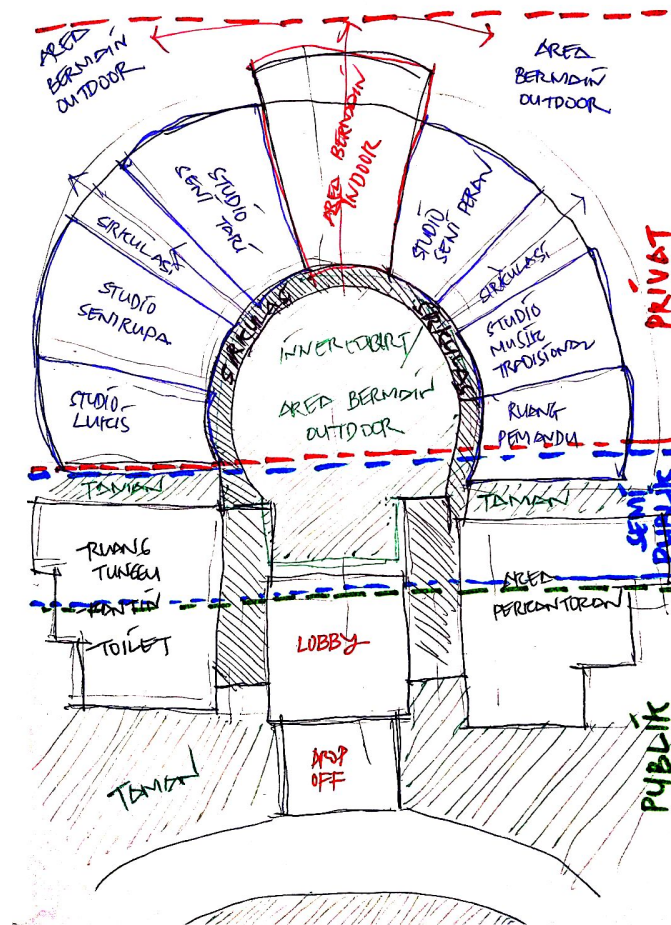 AREA
BERMAIN
OUTDOOR
AREA
BERMAIN
OUTDOOR
AREA BERMAIN
INDOOR
STUDIO
SENI TARI
STUDIO
SENI PERAN
SIRKULASI
SIRKULASI
STUDIO
SENI RUPA
STUDIO
MUSIK
TRADISIONAL
STUDIO
LUKIS
RUANG
PEMANDU
SIRKULASI
SIRKULASI
INNERCOURT/
AREA BERMAIN
OUTDOOR
PRIVAT
TAMAN
TAMAN
SEMI
PUBLIK
RUANG
TUNGGU
KANTIN
TOILET
AREA
PERKANTORAN
LOBBY
DROP
OFF
TAMAN
PUBLIK